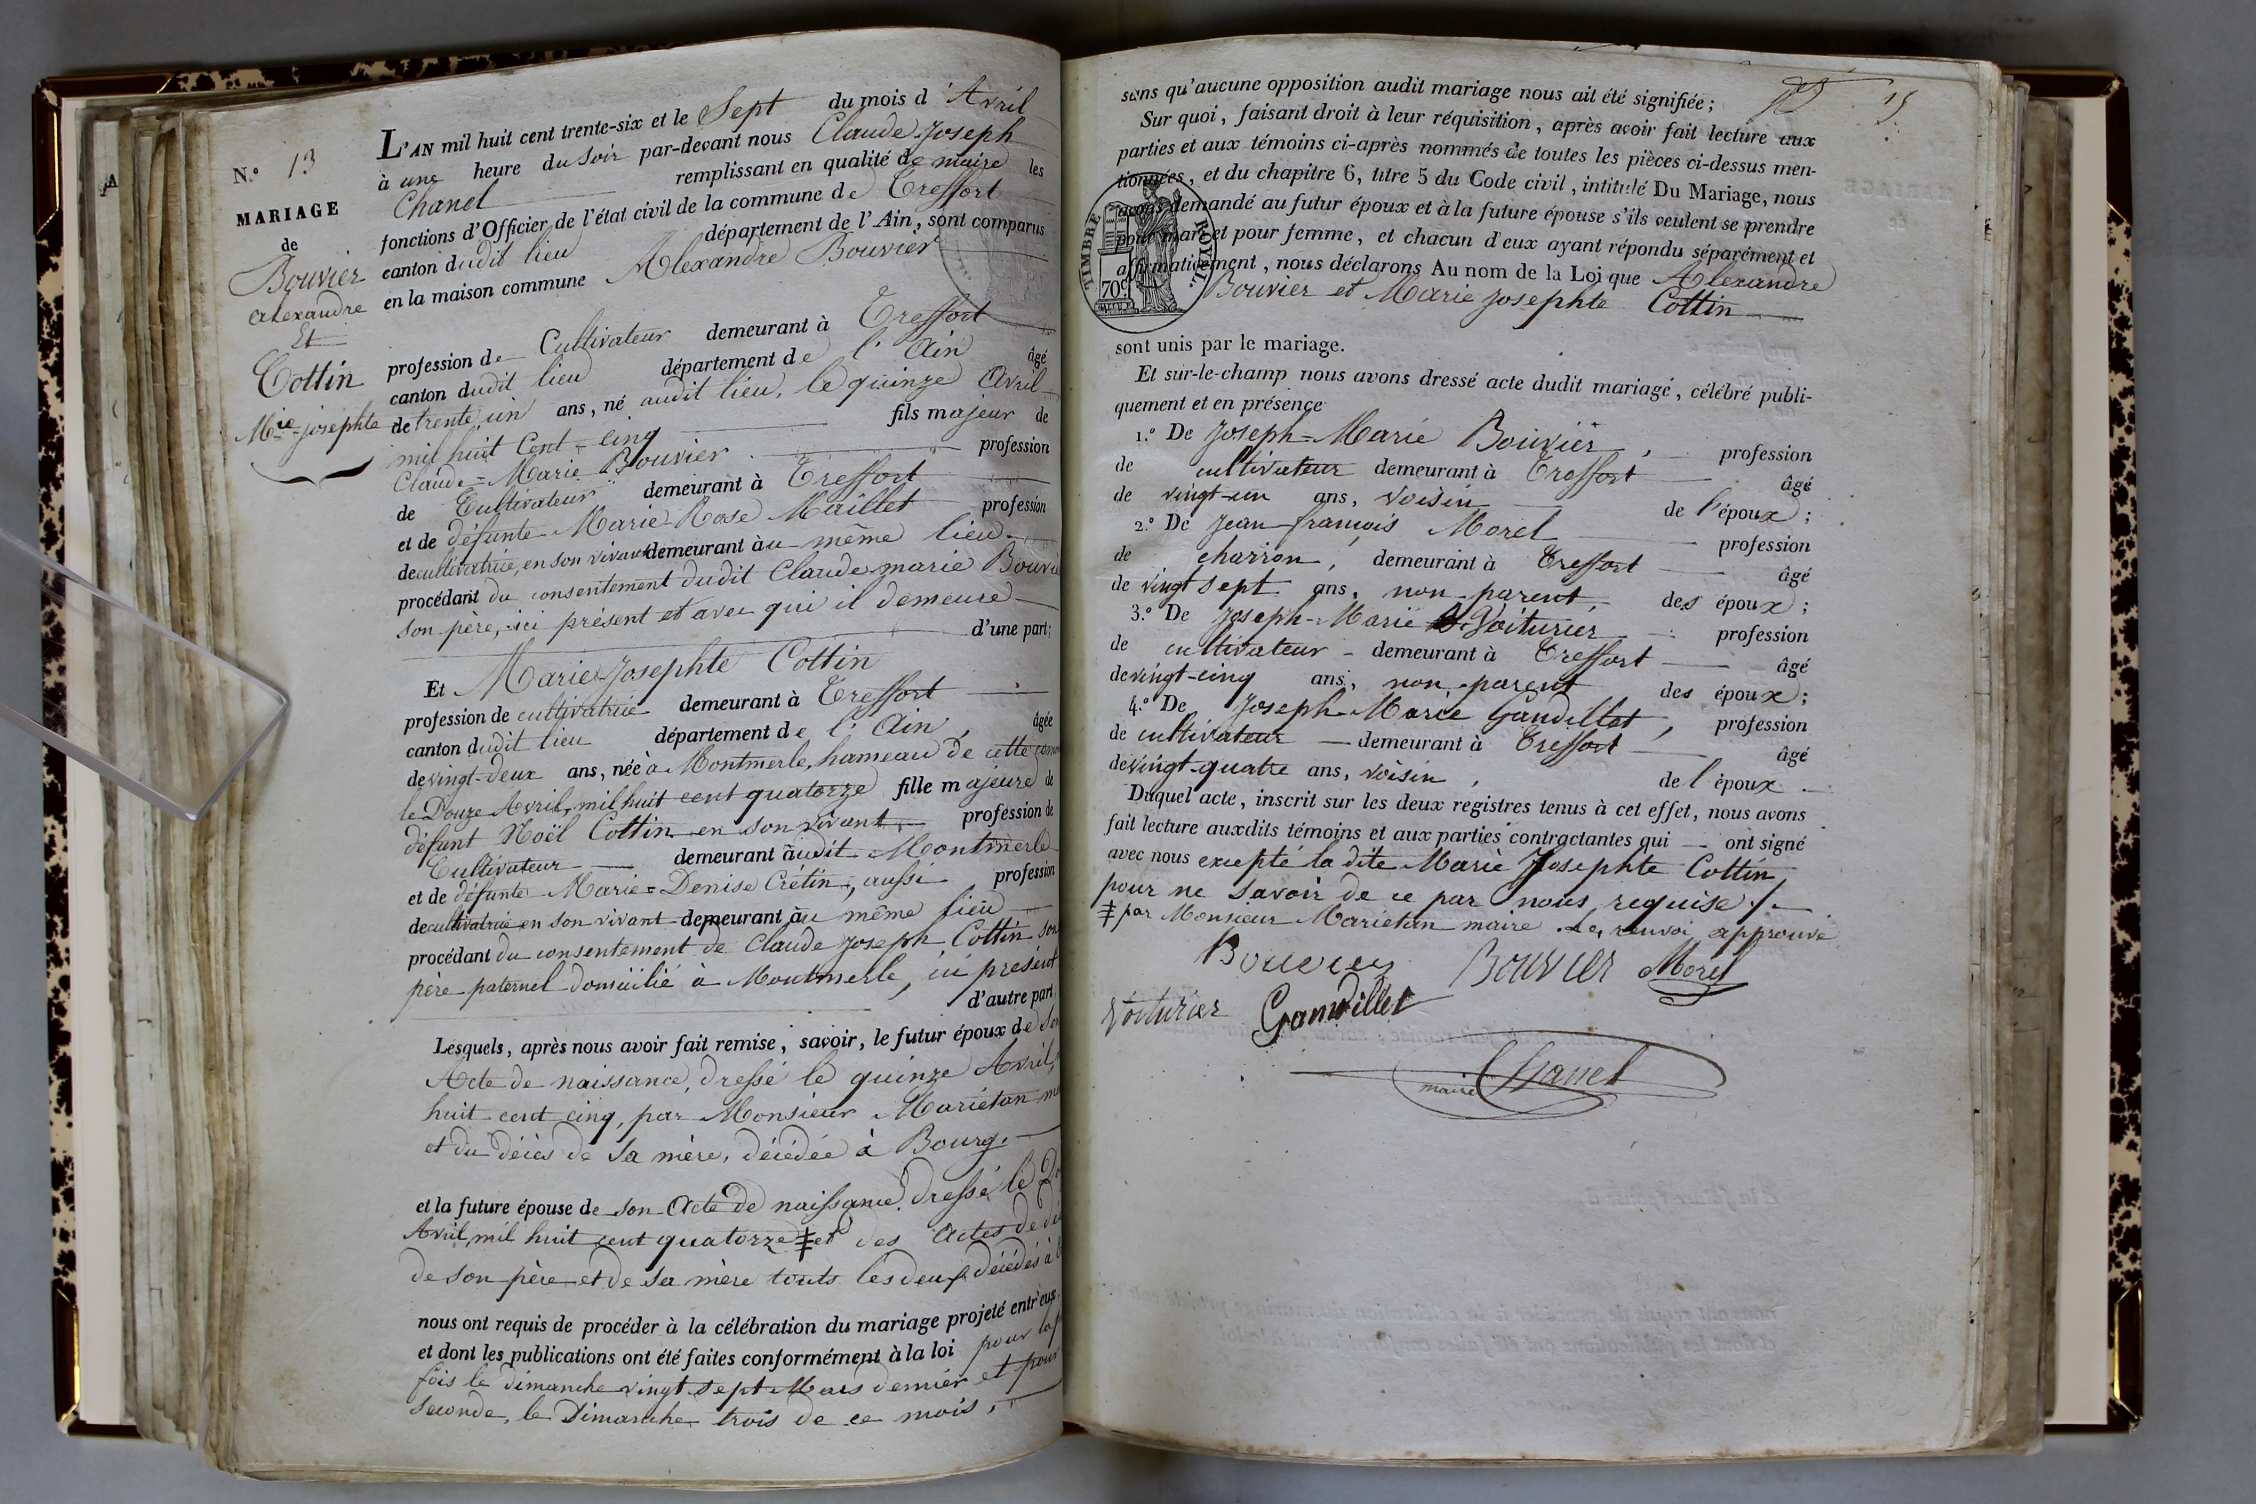 N.° 13
MARIAGE
de
Bouvier
alexandre
Et
Cottin
Mie josephte
L'AN mil huit cent trente-six et le Sept du mois d'Avril
à une heure du Soir par-devant nous Claude-Joseph
Chanel remplissant en qualité de maire les
fonctions d'Officier de l'état civil de la commune de Treffort
canton dudit lieu département de l'Ain, sont comparus
en la maison commune Alexandre Bouvier
profession de Cultivateur demeurant à Treffort
canton dudit lieu département de l'Ain âgé
de trente un ans, né audit lieu, le quinze Avril
mil huit Cent-cinq fils majeur de
Claude-Marie Bouvier profession
de Cultivateur demeurant à Treffort
et de défunte Marie-Rose Maillet profession
de cultivatrice, en son vivant demeurant au même lieu
procédant du consentement dudit Claude marie Bouvie
son père, ici présent et avec qui il demeure
d'une part;
Et Marie-Josephte Cottin
profession de cultivatrice demeurant à Treffort
canton dudit lieu département de l'Ain, âgée
de vingt-deux ans, née à Montmerle, hameau de cette com
le Douze Avril, mil huit cent quatorze fille majeure de
défunt Noël Cottin en son vivant, profession de
Cultivateur demeurant audit Montmerle
et de défunte Marie-Denise Crétin, aussi profession
de cultivatrice en son vivant demeurant au même lieu
procédant du consentement de Claude Joseph Cottin son
père paternel domicilié à Montmerle, ici présent
d'autre part.
Lesquels, après nous avoir fait remise, savoir, le futur époux de son
Acte de naissance, dressé le quinze Avril,
huit-cent cinq, par Monsieur Mariétan
et du décès de sa mère, décédée à Bourg.
et la future épouse de son Acte de naissance, dressé, le
Avril, mil huit cent quatorze ‡ et des Actes de
de son père et de sa mère touts les deux décédés à
nous ont requis de procéder à la célébration du mariage projeté entr'eux
et dont les publications ont été faites conformément à la loi pour la
fois le dimanche vingt-sept Mars dernier et pour
seconde, le Dimanche trois de ce mois,
15
sans qu'aucune opposition audit mariage nous ait été signifiée;
Sur quoi, faisant droit à leur réquisition, après avoir fait lecture aux
parties et aux témoins ci-après nommés de toutes les pièces ci-dessus men-
tionnées, et du chapitre 6, titre 5 du Code civil, intitulé Du Mariage, nous
avons demandé au futur époux et à la future épouse s'ils veulent se prendre
pour mari et pour femme, et chacun d'eux ayant répondu séparément et
affirmativement, nous déclarons Au nom de la Loi que Alexandre
Bouvier et Marie Josephte Cottin
TIMBRE ROYAL.
70c
sont unis par le mariage.
Et sur-le-champ nous avons dressé acte dudit mariage, célébré publi-
quement et en présence
1.° De Joseph-Marie Bouvier, profession
de cultivateur demeurant à Treffort âgé
de vingt-un ans, voisin de l'époux;
2.° De Jean-françois Morel profession
de charron, demeurant à Treffort âgé
de vingt sept ans, non-parent, des époux;
3.° De Joseph-Marie Voiturier profession
de cultivateur demeurant à Treffort âgé
de vingt-cinq ans, non-parent des époux;
4.° De Joseph-Marie Gandillet, profession
de cultivateur demeurant à Treffort âgé
de vingt-quatre ans, voisin, de l'époux
Duquel acte, inscrit sur les deux registres tenus à cet effet, nous avons
fait lecture auxdits témoins et aux parties contractantes qui ont signé
avec nous excepté la dite Marie Josephte Cottin,
pour ne savoir de ce par nous requise./.
‡ par Monsieur Mariétan maire. Le renvoi approuvé
Bouvier Bouvier Morel
Voiturier Gandillet
maire Chanel